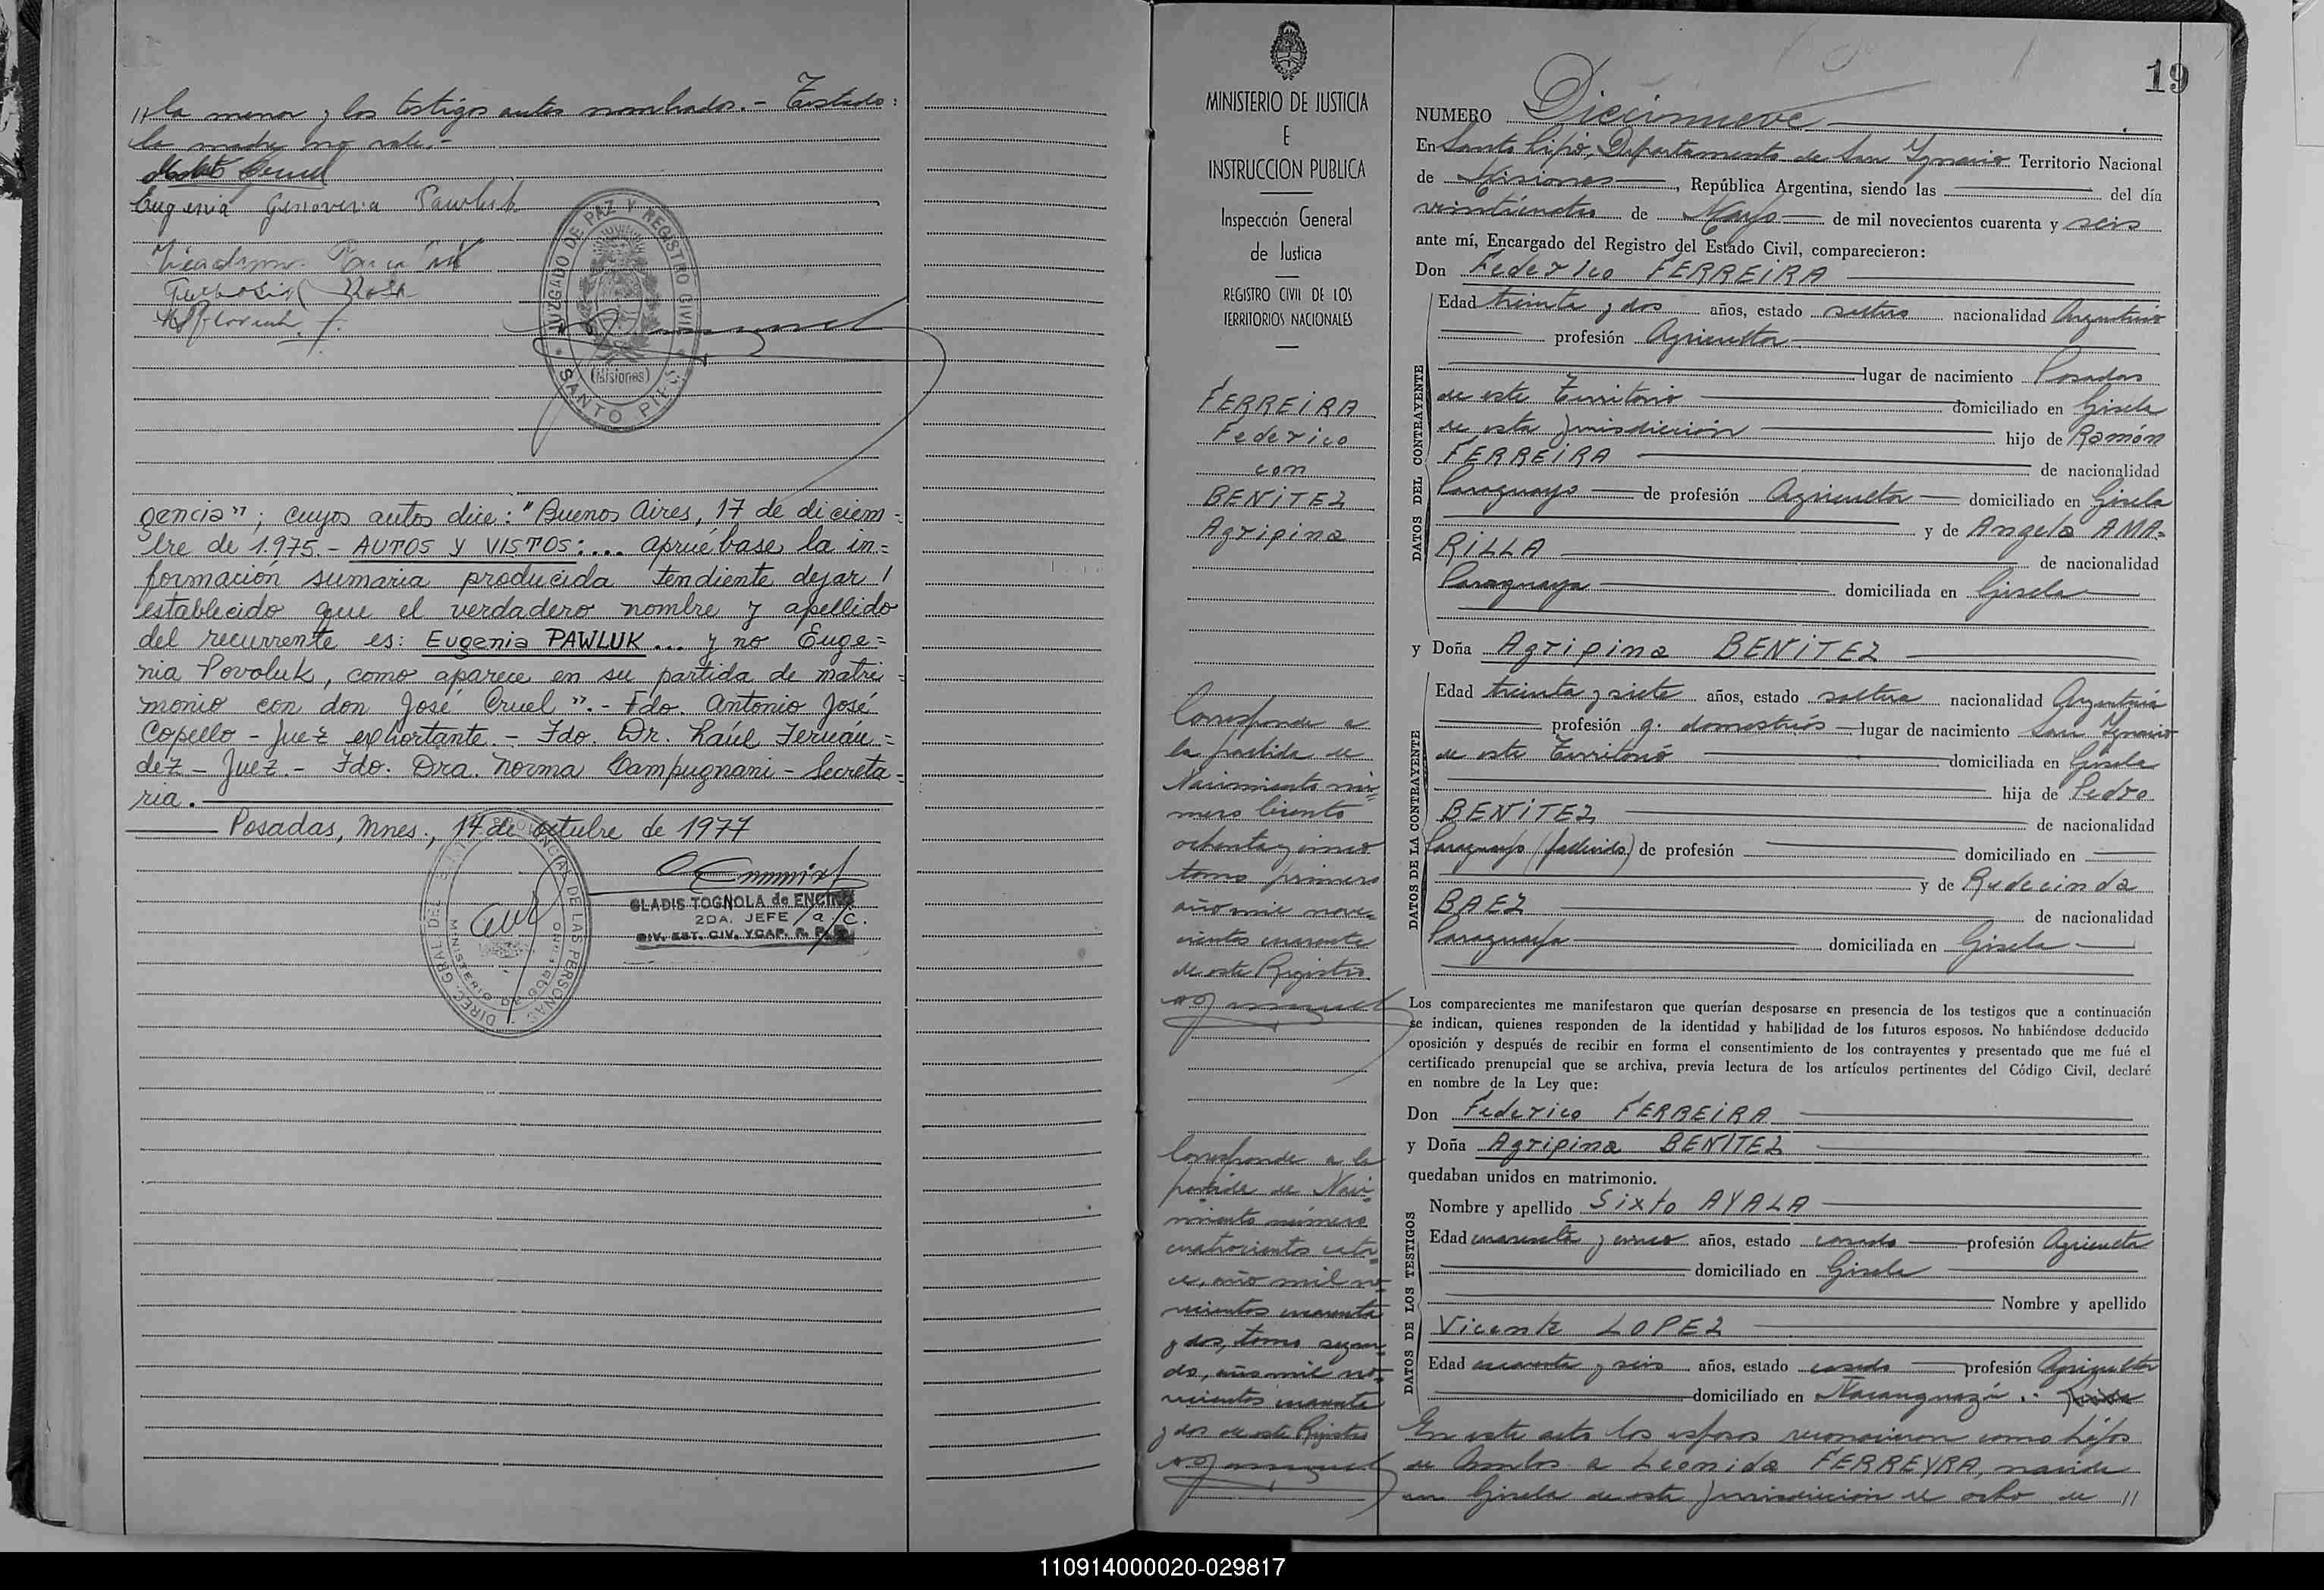 // la menor y los testigos antes nombrados.- Testado:
la madre no vale.-
Eugenia Genoveva Pawluk
JUZGADO DE PAZ Y REGISTRO CIVIL
(Misiones)
SANTO PIPO
gencia"; cuyos autos dice: "Buenos Aires, 17 de diciem=
bre de 1.975.- AUTOS Y VISTOS:... apruébase la in=
formación sumaria producida tendiente dejar /
establecido que el verdadero nombre y apellido
del recurrente es: Eugenia PAWLUK ... y no Euge=
nia Povoluk, como aparece en su partida de matri=
monio con don José Cruel".- Fdo. Antonio José
Copello - Juez exhortante.- Fdo. Dr. Raúl Fernán=
dez - Juez.- Fdo. Dra. Norma Campugnani - Secreta=
ria.
Posadas, Mnes., 14 de octubre de 1977
GLADIS TOGNOLA de ENCINA
2DA. JEFE a/c.
DIV. EST. CIV. YCAP.
MINISTERIO DE JUSTICIA
E
INSTRUCCION PUBLICA
Inspección General
de Justicia
REGISTRO CIVIL DE LOS
TERRITORIOS NACIONALES
FERREIRA
Federico
con
BENITEZ
Agripina
Corresponde a
la partida de
Nacimiento nú=
mero ciento
ochenta y cinco
tomo primero
año mil nove=
cientos cuarenta
de este Registro
Corresponde a la
partida de Naci=
miento número
cuatrocientos cator
ce, año mil no=
vecientos cuarenta
y dos, tomo segun=
do, año mil no=
vecientos cuarenta
y dos de este Registro
19
NUMERO Diecinueve
En Santo Pipó, Departamento de San Ignacio Territorio Nacional
de Misiones, República Argentina, siendo las del día
veinticuatro de Mayo de mil novecientos cuarenta y seis
ante mí, Encargado del Registro del Estado Civil, comparecieron:
Don Federico FERREIRA
DATOS DEL CONTRAYENTE
Edad treinta y dos años, estado soltero nacionalidad Argentino
profesión Agricultor
lugar de nacimiento Posadas
de este Territorio domiciliado en Gisela
de esta jurisdicción hijo de Ramón
FERREIRA de nacionalidad
Paraguayo de profesión Agricultor domiciliado en Gisela
y de Angela AMA=
RILLA de nacionalidad
Paraguaya domiciliada en Gisela
y Doña Agripina BENITEZ
DATOS DE LA CONTRAYENTE
Edad treinta y siete años, estado soltera nacionalidad Argentina
profesión q. domésticos lugar de nacimiento San Ignacio
de este Territorio domiciliada en Gisela
hija de Pedro
BENITEZ de nacionalidad
Paraguayo (fallecido) de profesión domiciliado en
y de Rudecinda
BAEZ de nacionalidad
Paraguaya domiciliada en Gisela
Los comparecientes me manifestaron que querían desposarse en presencia de los testigos que a continuación
se indican, quienes responden de la identidad y habilidad de los futuros esposos. No habiéndose deducido
oposición y después de recibir en forma el consentimiento de los contrayentes y presentado que me fué el
certificado prenupcial que se archiva, previa lectura de los artículos pertinentes del Código Civil, declaré
en nombre de la Ley que:
Don Federico FERREIRA
y Doña Agripina BENITEZ
quedaban unidos en matrimonio.
DATOS DE LOS TESTIGOS
Nombre y apellido Sixto AYALA
Edad cuarenta y cinco años, estado casado profesión Agricultor
domiciliado en Gisela
Nombre y apellido
Vicente LOPEZ
Edad cuarenta y seis años, estado casado profesión Agricultor
domiciliado en Ñacanguazú.:
En este acto los esposos reconocieron como hijos
de ambos a Leonida FERREYRA, nacida
en Gisela de esta jurisdicción el ocho de //
110914000020-029817